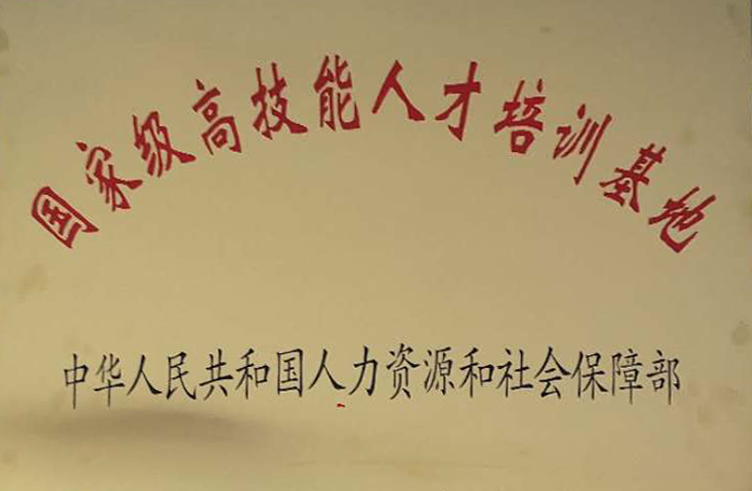 国家级高技能人才培训基地
中华人民共和国人力资源和社会保障部